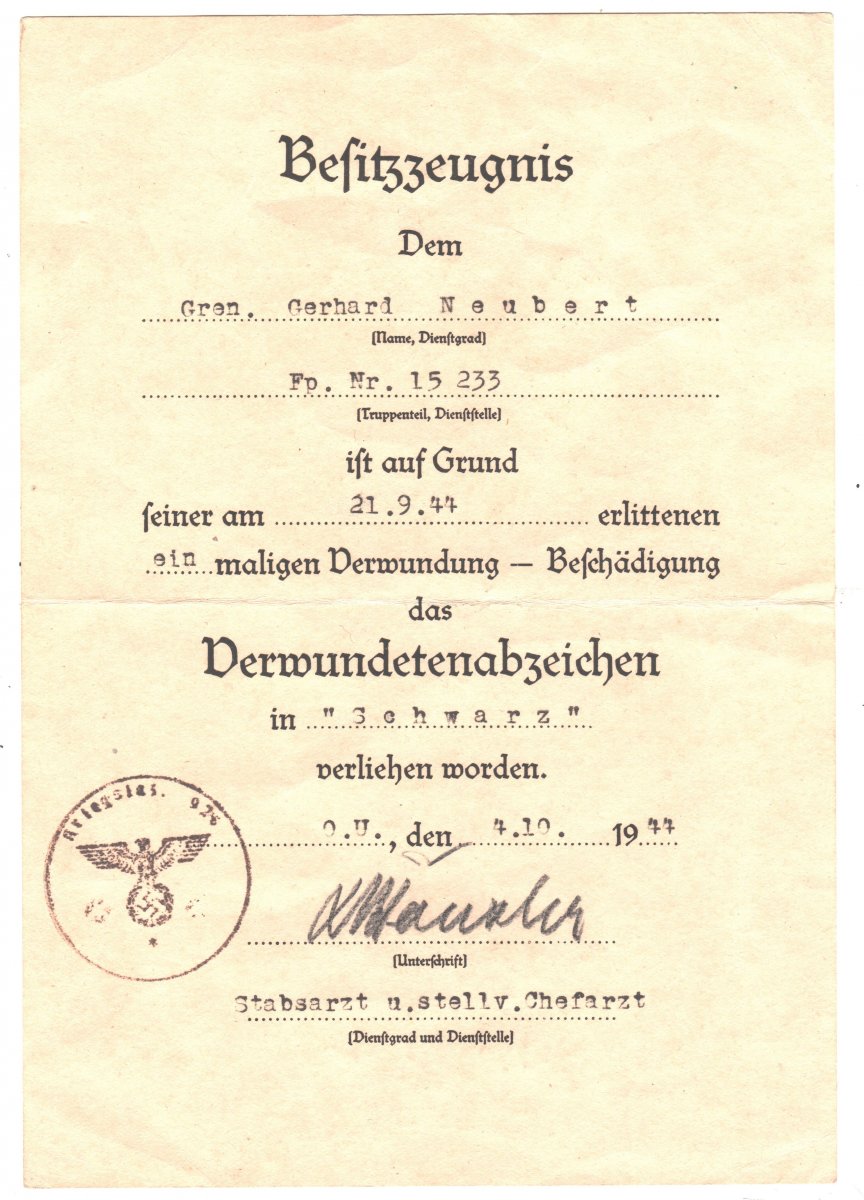 Besitzzeugnis
Dem
Gren. Gerhard Neubert
(Name, Dienstgrad)
Fp. Nr. 15 233
(Truppenteil, Dienststelle)
ist auf Grund
seiner am 21.9.44 erlittenen
ein maligen Verwundung — Beschädigung
das
Verwundetenabzeichen
in "Schwarz"
verliehen worden.
O.U., den 4.10. 1944
(Unterschrift)
Stabsarzt u.stellv.Chefarzt
(Dienstgrad und Dienststelle)